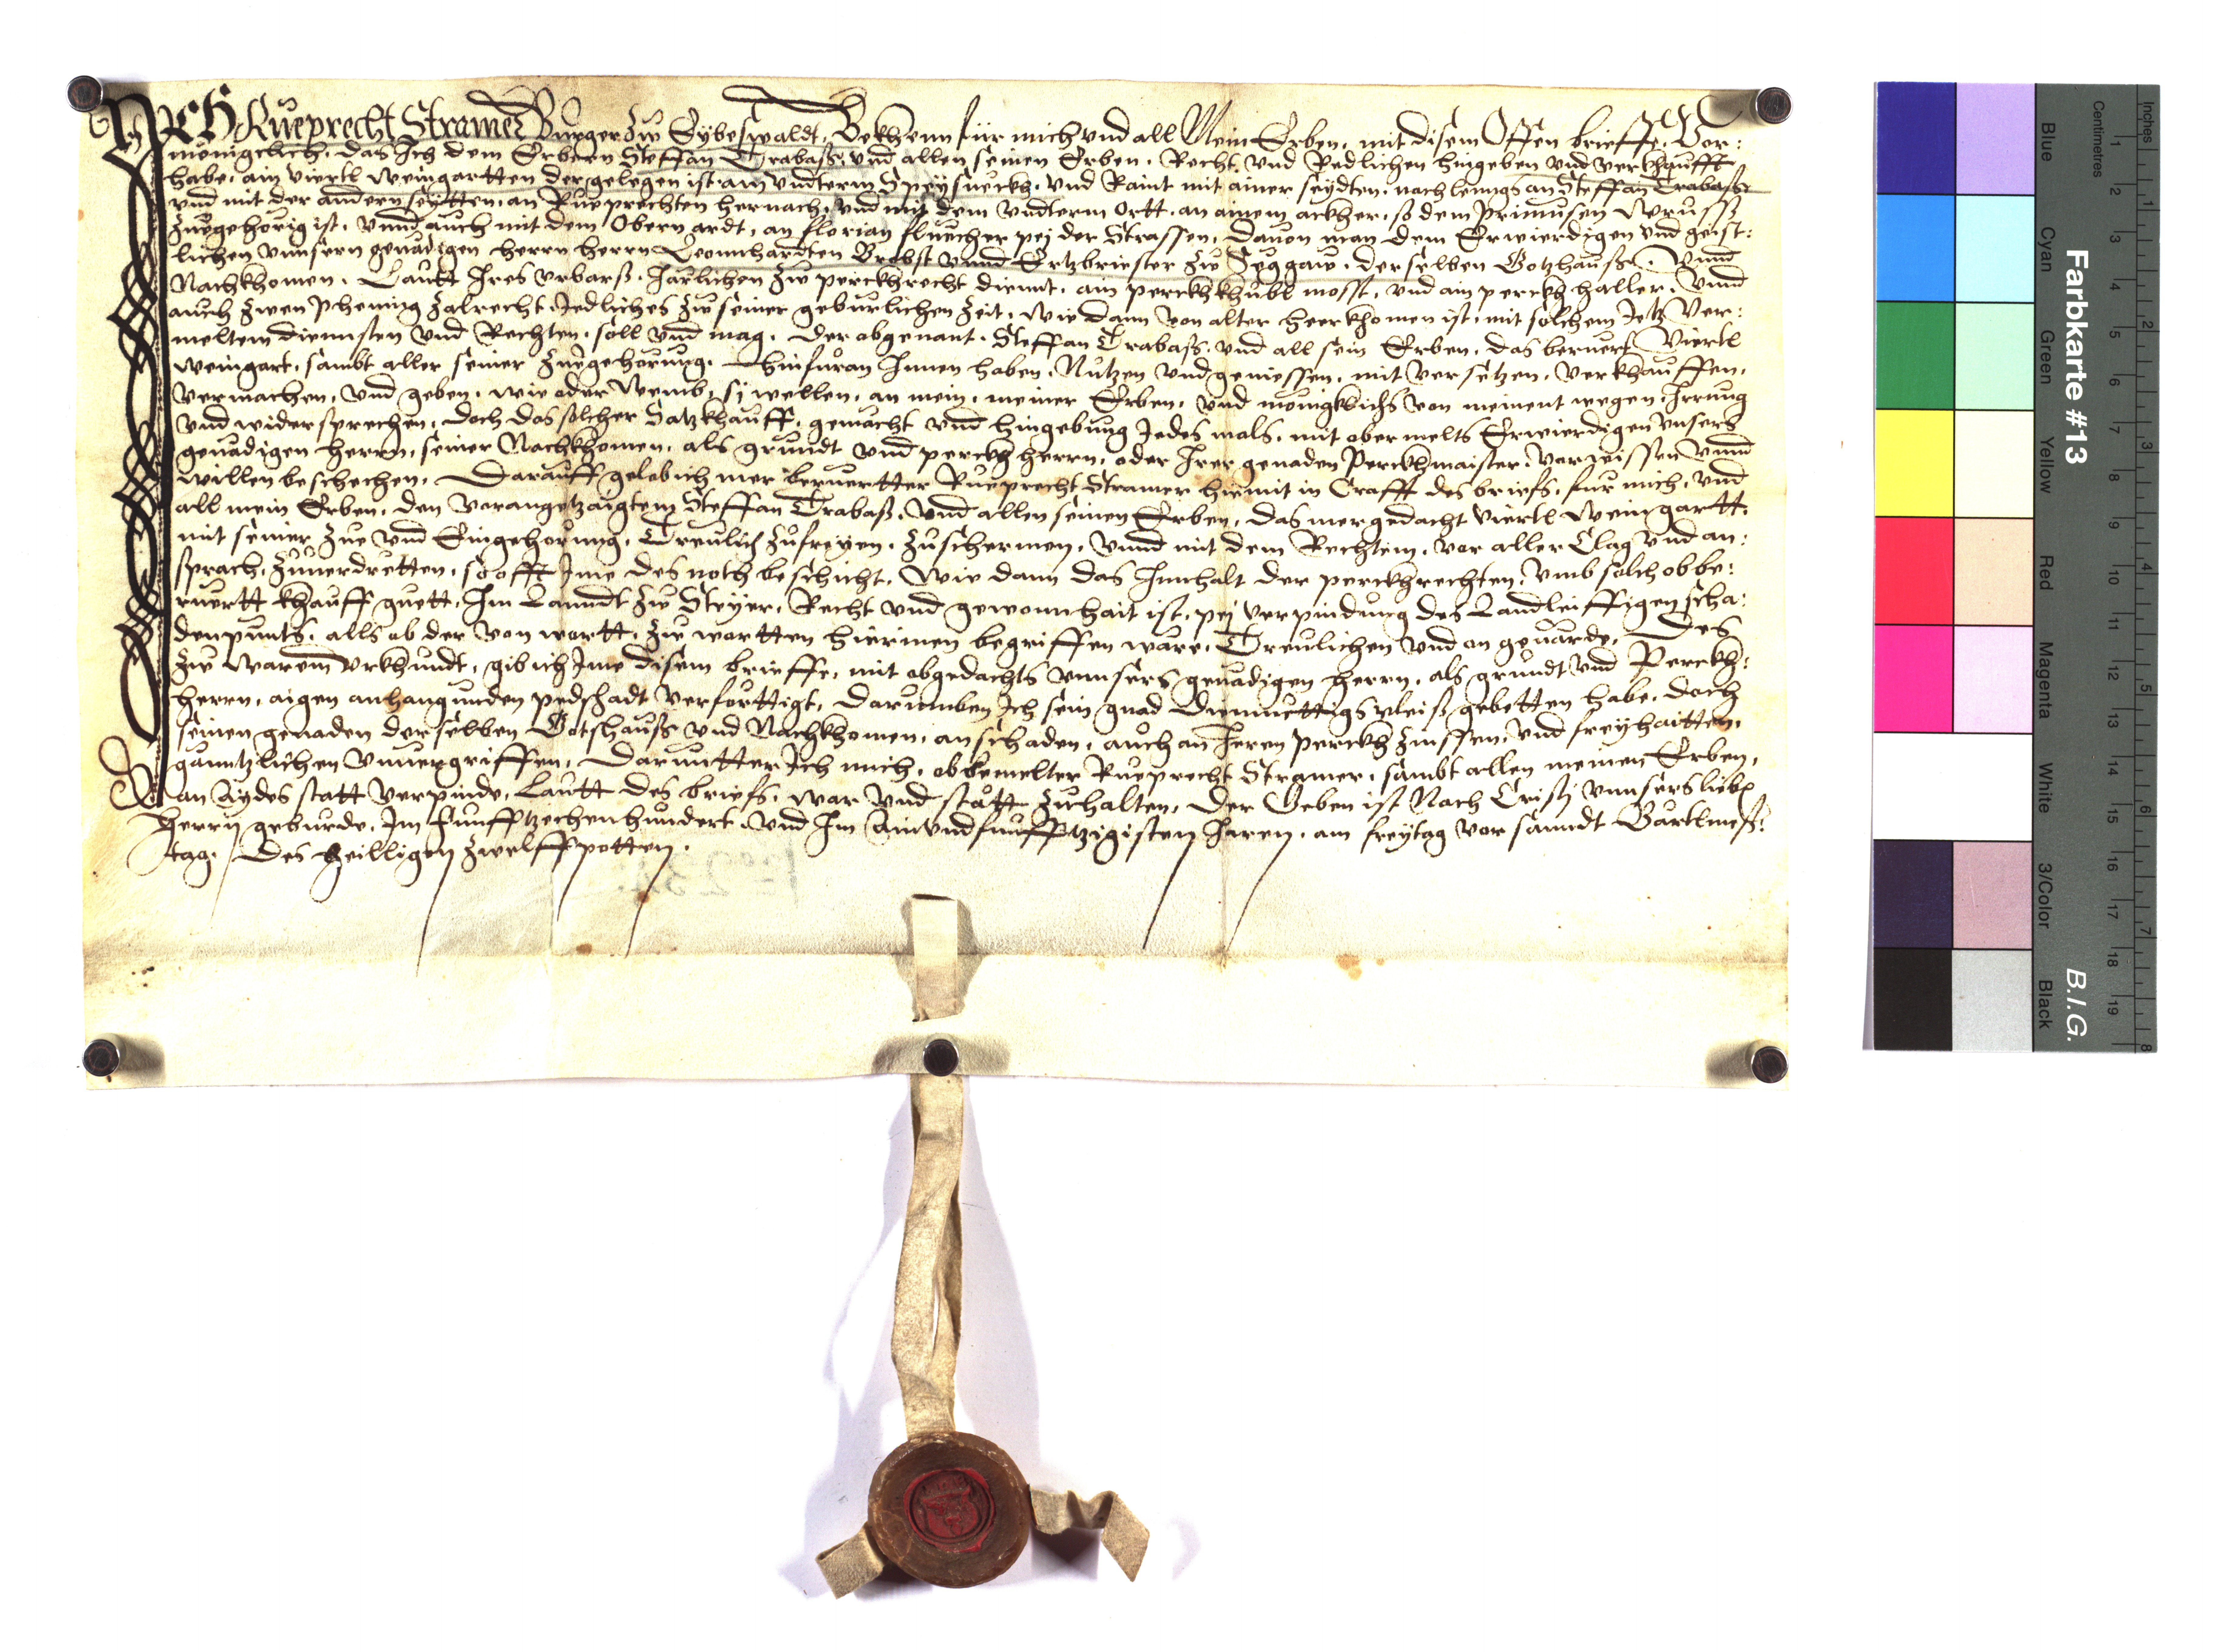 ICH Rueprecht Stramer Burger zw Eybeswaldt, Bekhenn für mich vnd all Mein Erben, mit disem Offen brieffe, Vor:
mënigclich, das Ich dem Erbern Steffan Trabaß, vnd allen seinen Erben, Recht vnd Redlichen hingeben vnd verkhaufft
habe, ain Viertl Weingartten der gelegen ist am vndterm Speysneckh, vnd Raint mit ainer seydten, nach lenngs an Steffan Trabaße
vnd mit der andern seytten, an Rueprechten hernach, vnd mit dem vndterm Ortt, an ainem ackher, so dem Primusen
zuegehörig ist, vnnd auch mit dem Obern ardt, an florian fluecher pej der Strassen, dauon man dem Erwierdigen vnd geist:
lichen vnnsern genädigen herrn herrn Leonnhardten Brobst vnnd Ertzbriester zw Seggaw, derselben Gotzhauße, vnnd
Nachkhomen, Lautt Ires vrbarß, Järlichen zw perckhrecht diennt, ain perckhkhübl mosst, vnd ain perckh haller, vnnd
auch zwen phening zalrecht, Jedliches zw seiner gebürlichen zeit, wie dann von alter heerkhomen ist, mit solchem Jetz Ver:
melten diennsten vnd Rechten, soll vnd mag, der abgenant, Steffan Trabaß, vnd all sein Erben, das beruert Viertl
Weingart, sambt aller seiner zuegehörung, hinfüron Innen haben, Nutzen vnd geniessen, mit versetzen, verkhauffen,
vermachen, vnd geben, wie oder Wemb, sj wellen, an mein, meiner Erben, vnd menigklichs von meinent wegen, Irrung
vnd widersprechen, doch das solcher Satz khauff, gemächt vnd hingebung Jedes mals, mit ober melts Erwierdigen vnsers
genädigen herrn, seiner Nachkhomen, als grundt vnd perckh herrn, oder Irer genaden Perckhmaister, vorwissen vnnd
willen beschechen, Darauff gelob ich mer beruertter Rueprecht Stramer hiemit in Crafft des briefs, für mich, vnd
all mein Erben, den vorangetzaigtem Steffan Trabaß, vnd allen seinen Erben, das mergedacht Viertl Weingartt,
mit seiner zue vnd Eingehörung, Treulich zufreyen, zuschermen, vnnd mit dem Rechten, vor aller Clag vnd an:
sprach, zuuerdretten, so offt Ime des noth beschicht, Wie dann das Innhalt der perckhrechten, vmb solch obbe:
ruertt khauff guett, Im Lanndt zw Steyer, Recht vnd gewonnhait ist, pej verpindung des Landleiffigen scha:
denpunts, alls ob der von wortt, zw wortten hierinen begriffen wäre, Treulichen vnd on geuärde, Des
zw warem vrkhundt, gib ich Ime disem brieffe, mit obgedachts vnnsers genädigen herrn, als grundt vnd Perckh:
herrn, aigen anhangunden pedschadt verförttigt, darumben Ich sein gnad diemuettigs vleiß gebetten habe, doch
seinen genaden derselben Gotshauß vnd Nachkhomen, on schaden, auch an Iren perckh zinssen, vnd freyhaitten,
ganntzlichen vnuergriffen, Darunntter Ich mich, obbemelter Rueprecht Stramer, sambt allen meinen Erben,
an Aydes statt verpinde, Lautt des briefs, war vnd stätt zuhalten, Der Geben ist Nach Cristj vnnsers lieben
herrn geburde, Im funfftzechenhundert vnd Im Ain vnd funfftzigisten Jaren, am freytag vor sanndt Bartlmeß:
tag, des heilligen zwelffpotten.
Farbkarte #13
B.I.G.
Inches
Centimetres
Blue
Cyan
Green
Yellow
Red
Magenta
White
3/Color
Black
1 2 3 4 5 6 7 8 9 10 11 12 13 14 15 16 17 18 19
1 2 3 4 5 6 7 8